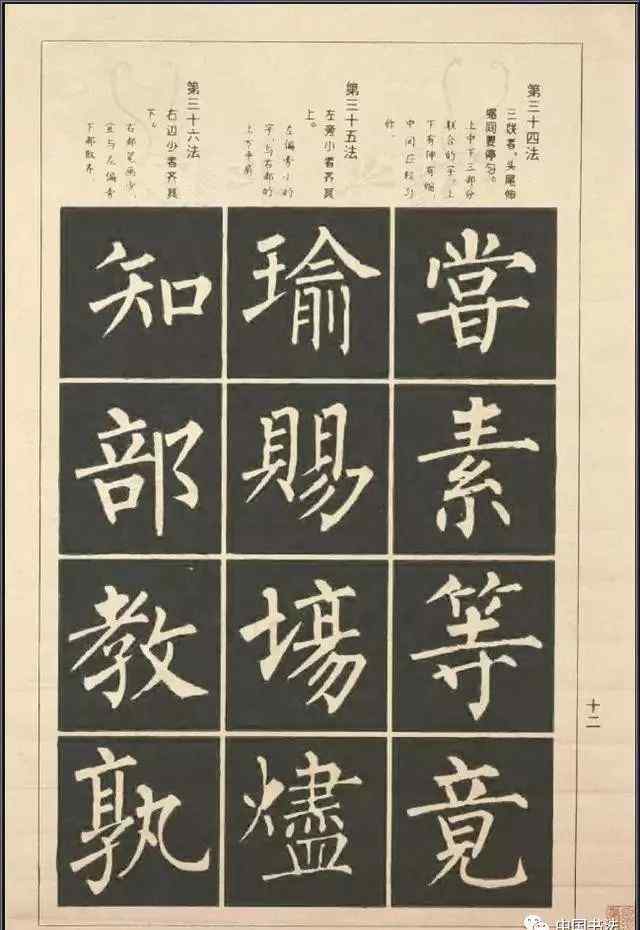 第三十四法
三段者，头尾伸
缩间要停匀。
上中下三部分
联合的字，上
下有伸有缩，
中间应较匀
称。
甞
素
等
竟
第三十五法
左旁小者齐其
上。
左偏旁小的
字，与右部的
上下平肩
瑜
賜
塲
燼
第三十六法
右边少者齐其
下。
右部笔画少，
宜与左偏旁
下部取齐
知
部
教
孰
十二
中国书法